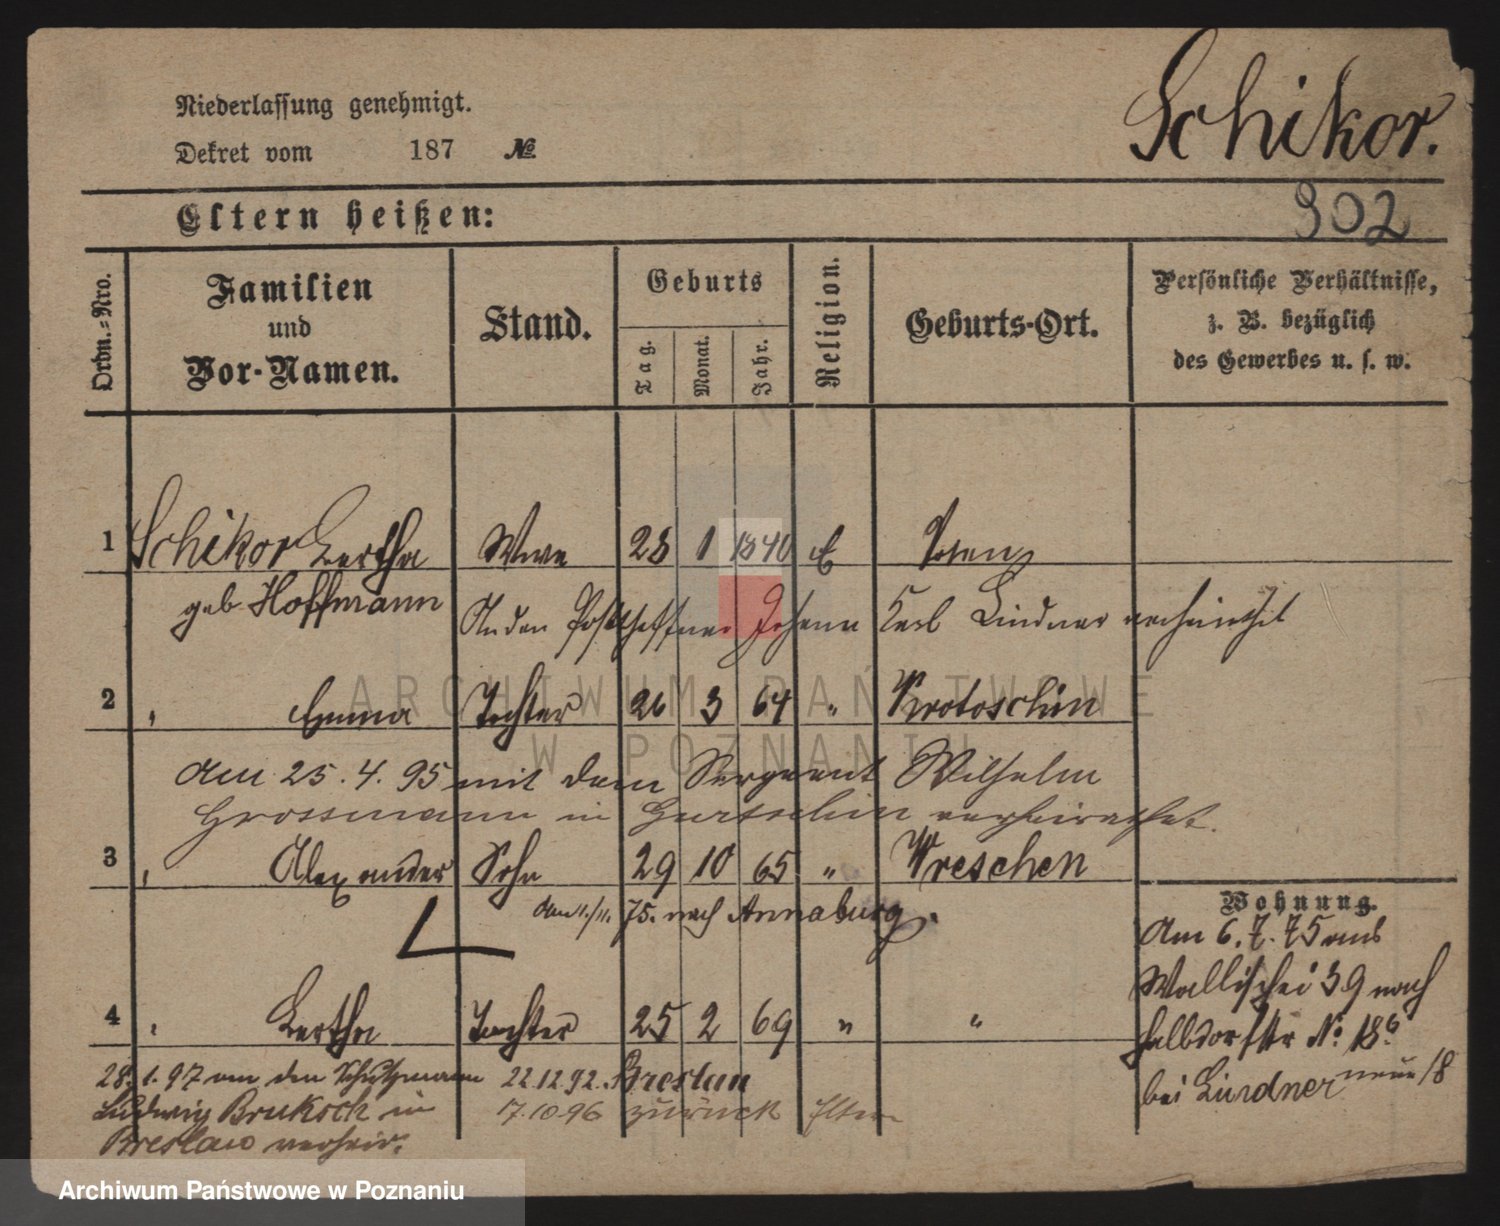 Schikor.
Niederlassung genehmigt.
Dekret vom 187 №
302
Eltern heißen:
Ordn.=Nro. Familien und Vor-Namen. Stand. Geburts Tag. Monat. Jahr. Religion. Geburts-Ort. Persönliche Verhältnisse, z. B. bezüglich des Gewerbes u. s. w.
1 Schikor Bertha Wwe 28 1 1840 E Posen
geb Hoffmann An den Johann Karl Lindner verheirathet
2 " Emma Tochter 26 3 64 " Krotoschin
Am 25.4.95 mit dem Sergeant Wilhelm
Grossmann in verheirathet.
3 " Alexander Sohn 29 10 65 " Wreschen
den 1./11. 75. nach Annaburg.
4 " Bertha Tochter 25 2 69 " "
28.1.97 an den Schutzmann 22.12.92. Breslau
Ludwig Bruksch in 17.10.96 zurück Eltern
Breslau verheir.
Wohnung.
Am 6.7.75 aus
Wallischei 39 nach
Halbdorfstr No 18b
bei Lindner neue 18
ARCHIWUM PAŃSTWOWE
W POZNANIU
Archiwum Państwowe w Poznaniu